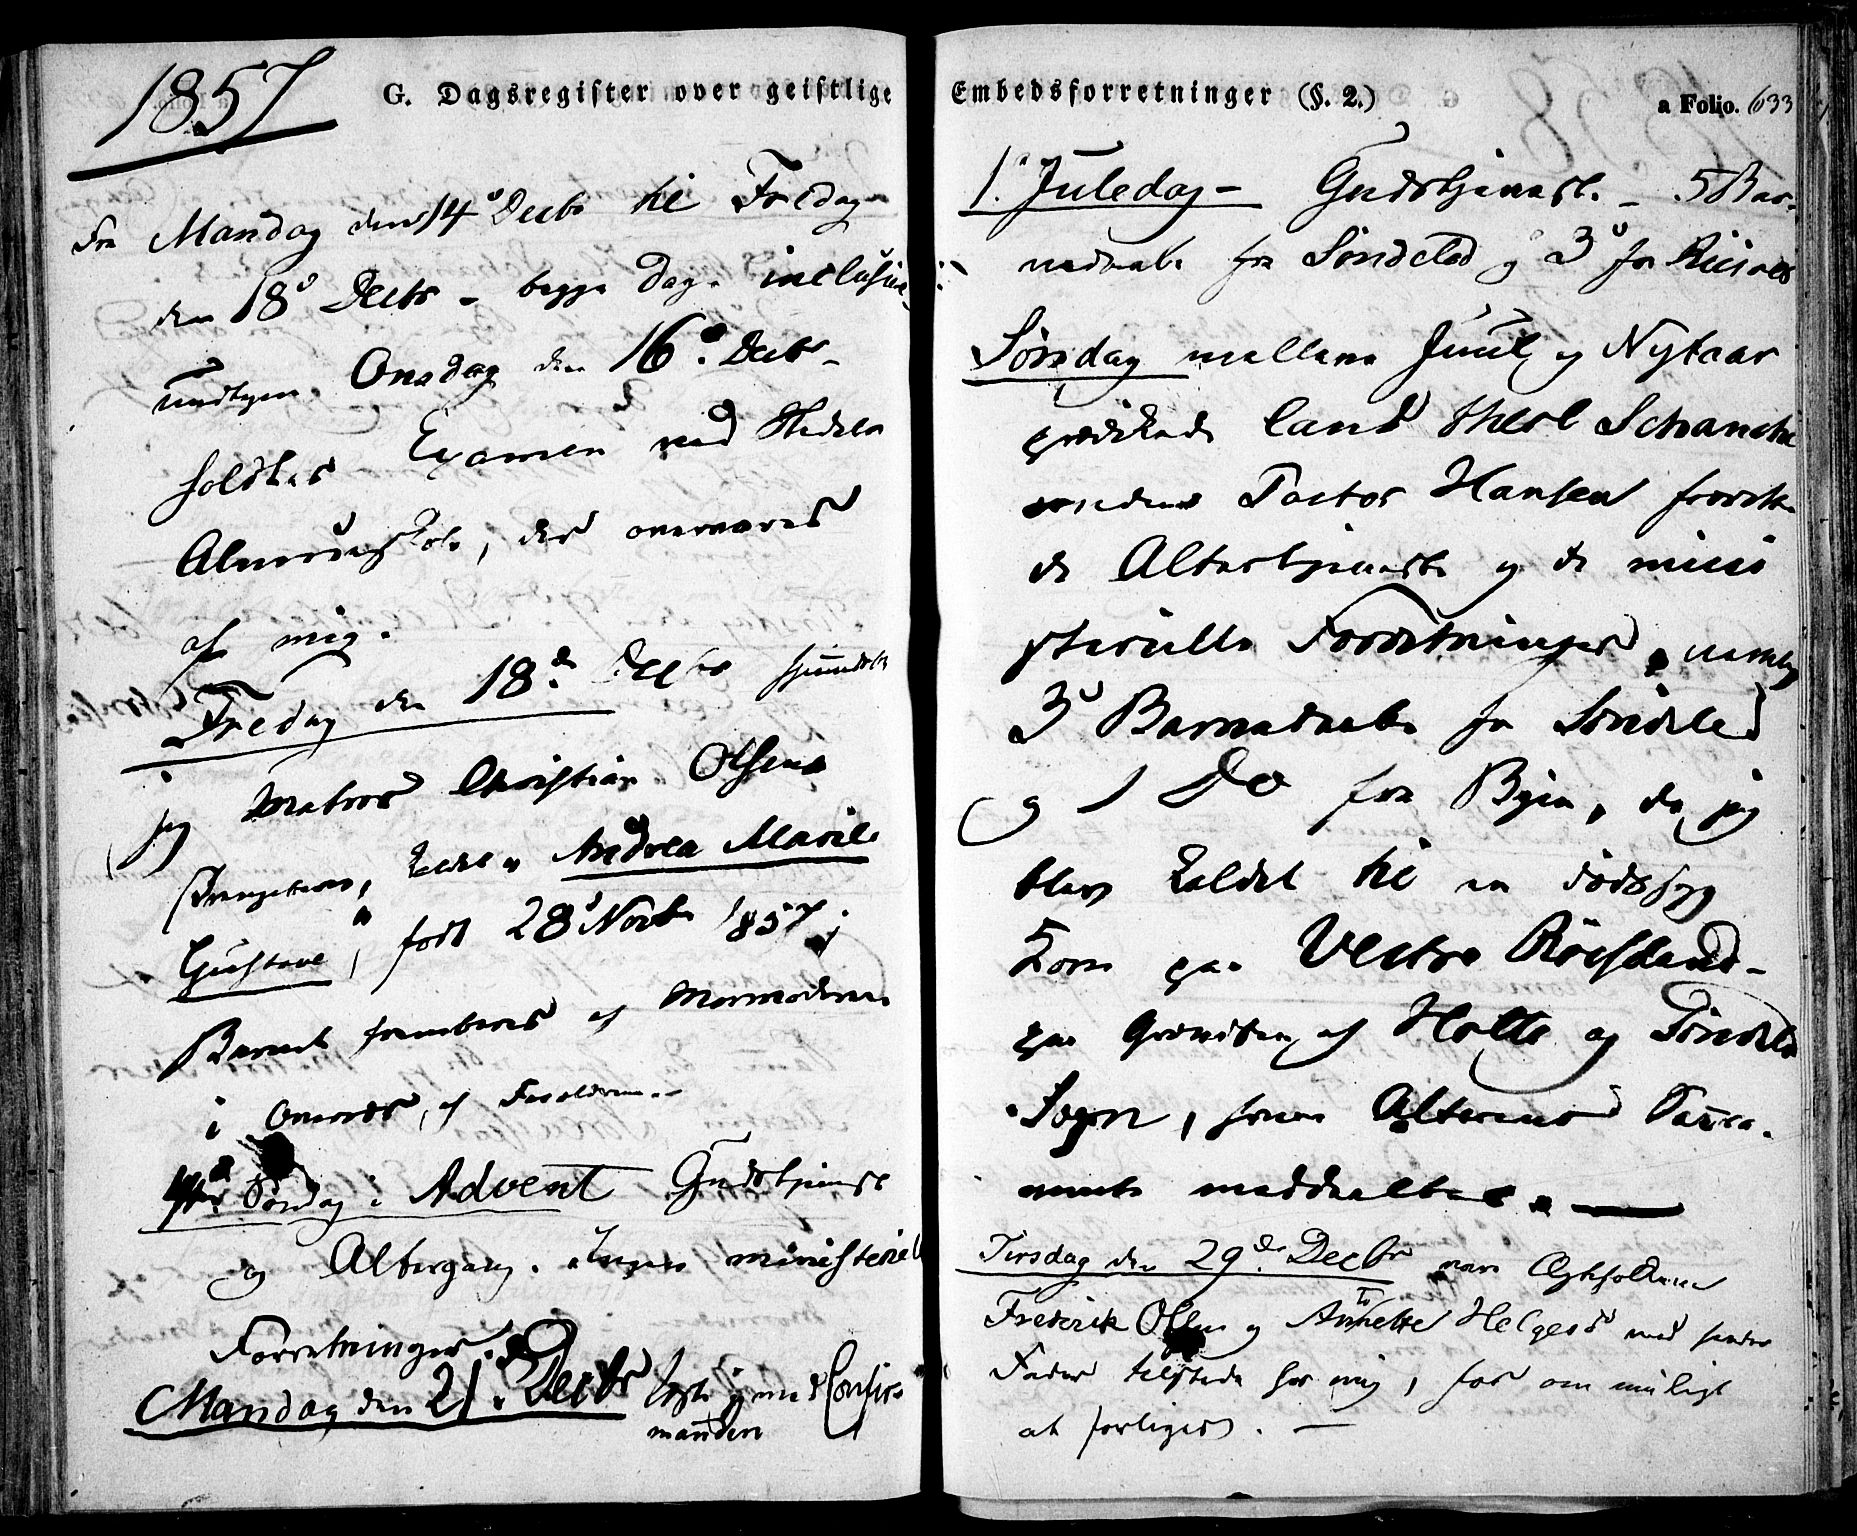 1857
G. Dagsregister over geistlige
Fra Mandag den 14d Decbr til Fredag
den 18d Decbr - begge Dage inclusive,
undtagen Onsdag den 16d. Decbr -
holdtes Examen ved Stedets
Almueskole, der overværes
af mig.
Fredag den 18de. Decbr hjemdøbte
jeg Matros Christian Olsens
kaldet „Andrea Marile
Gustave“, født 28d Novbr 1857;
Barnet frembæres af Mormoderen
i Overvær af Forældrene. -
4de Søndag i Advent Gudstjeneste
og Altergang. Ingen ministeriell
Forretninger.
Mandag den 21. Decbr læste jeg med Confir-
manden
Embedsforretninger (§. 2.)
a Folio. 633
1. Juledag - Gudstjeneste. - 5 Bar-
nedaab fra Søndeled og 3d fra Riisøer
Søndag mellem Juul og Nytaar
prædikede Cand theol Schanche
medens Pastor Hansen forrette-
de Altertjeneste og de mini
sterielle Forretninger, nemlig
3d Barnedaab fra Søndeled
og 1 Do fra Byen, da jeg
blev kaldet til en dødssyg
Kone paa Vestre Röisland -
paa Grændsen af Holte og Søndeled
Sogn, hvem Alterens Sacra-
mente meddeeltes. —
Tirsdag den 29de. Decbr vare Ægtefolkene
Frederik Olsen og Annette Helgesd med hendes
Fader tilstede hos mig, for om muligt
at forliges. —